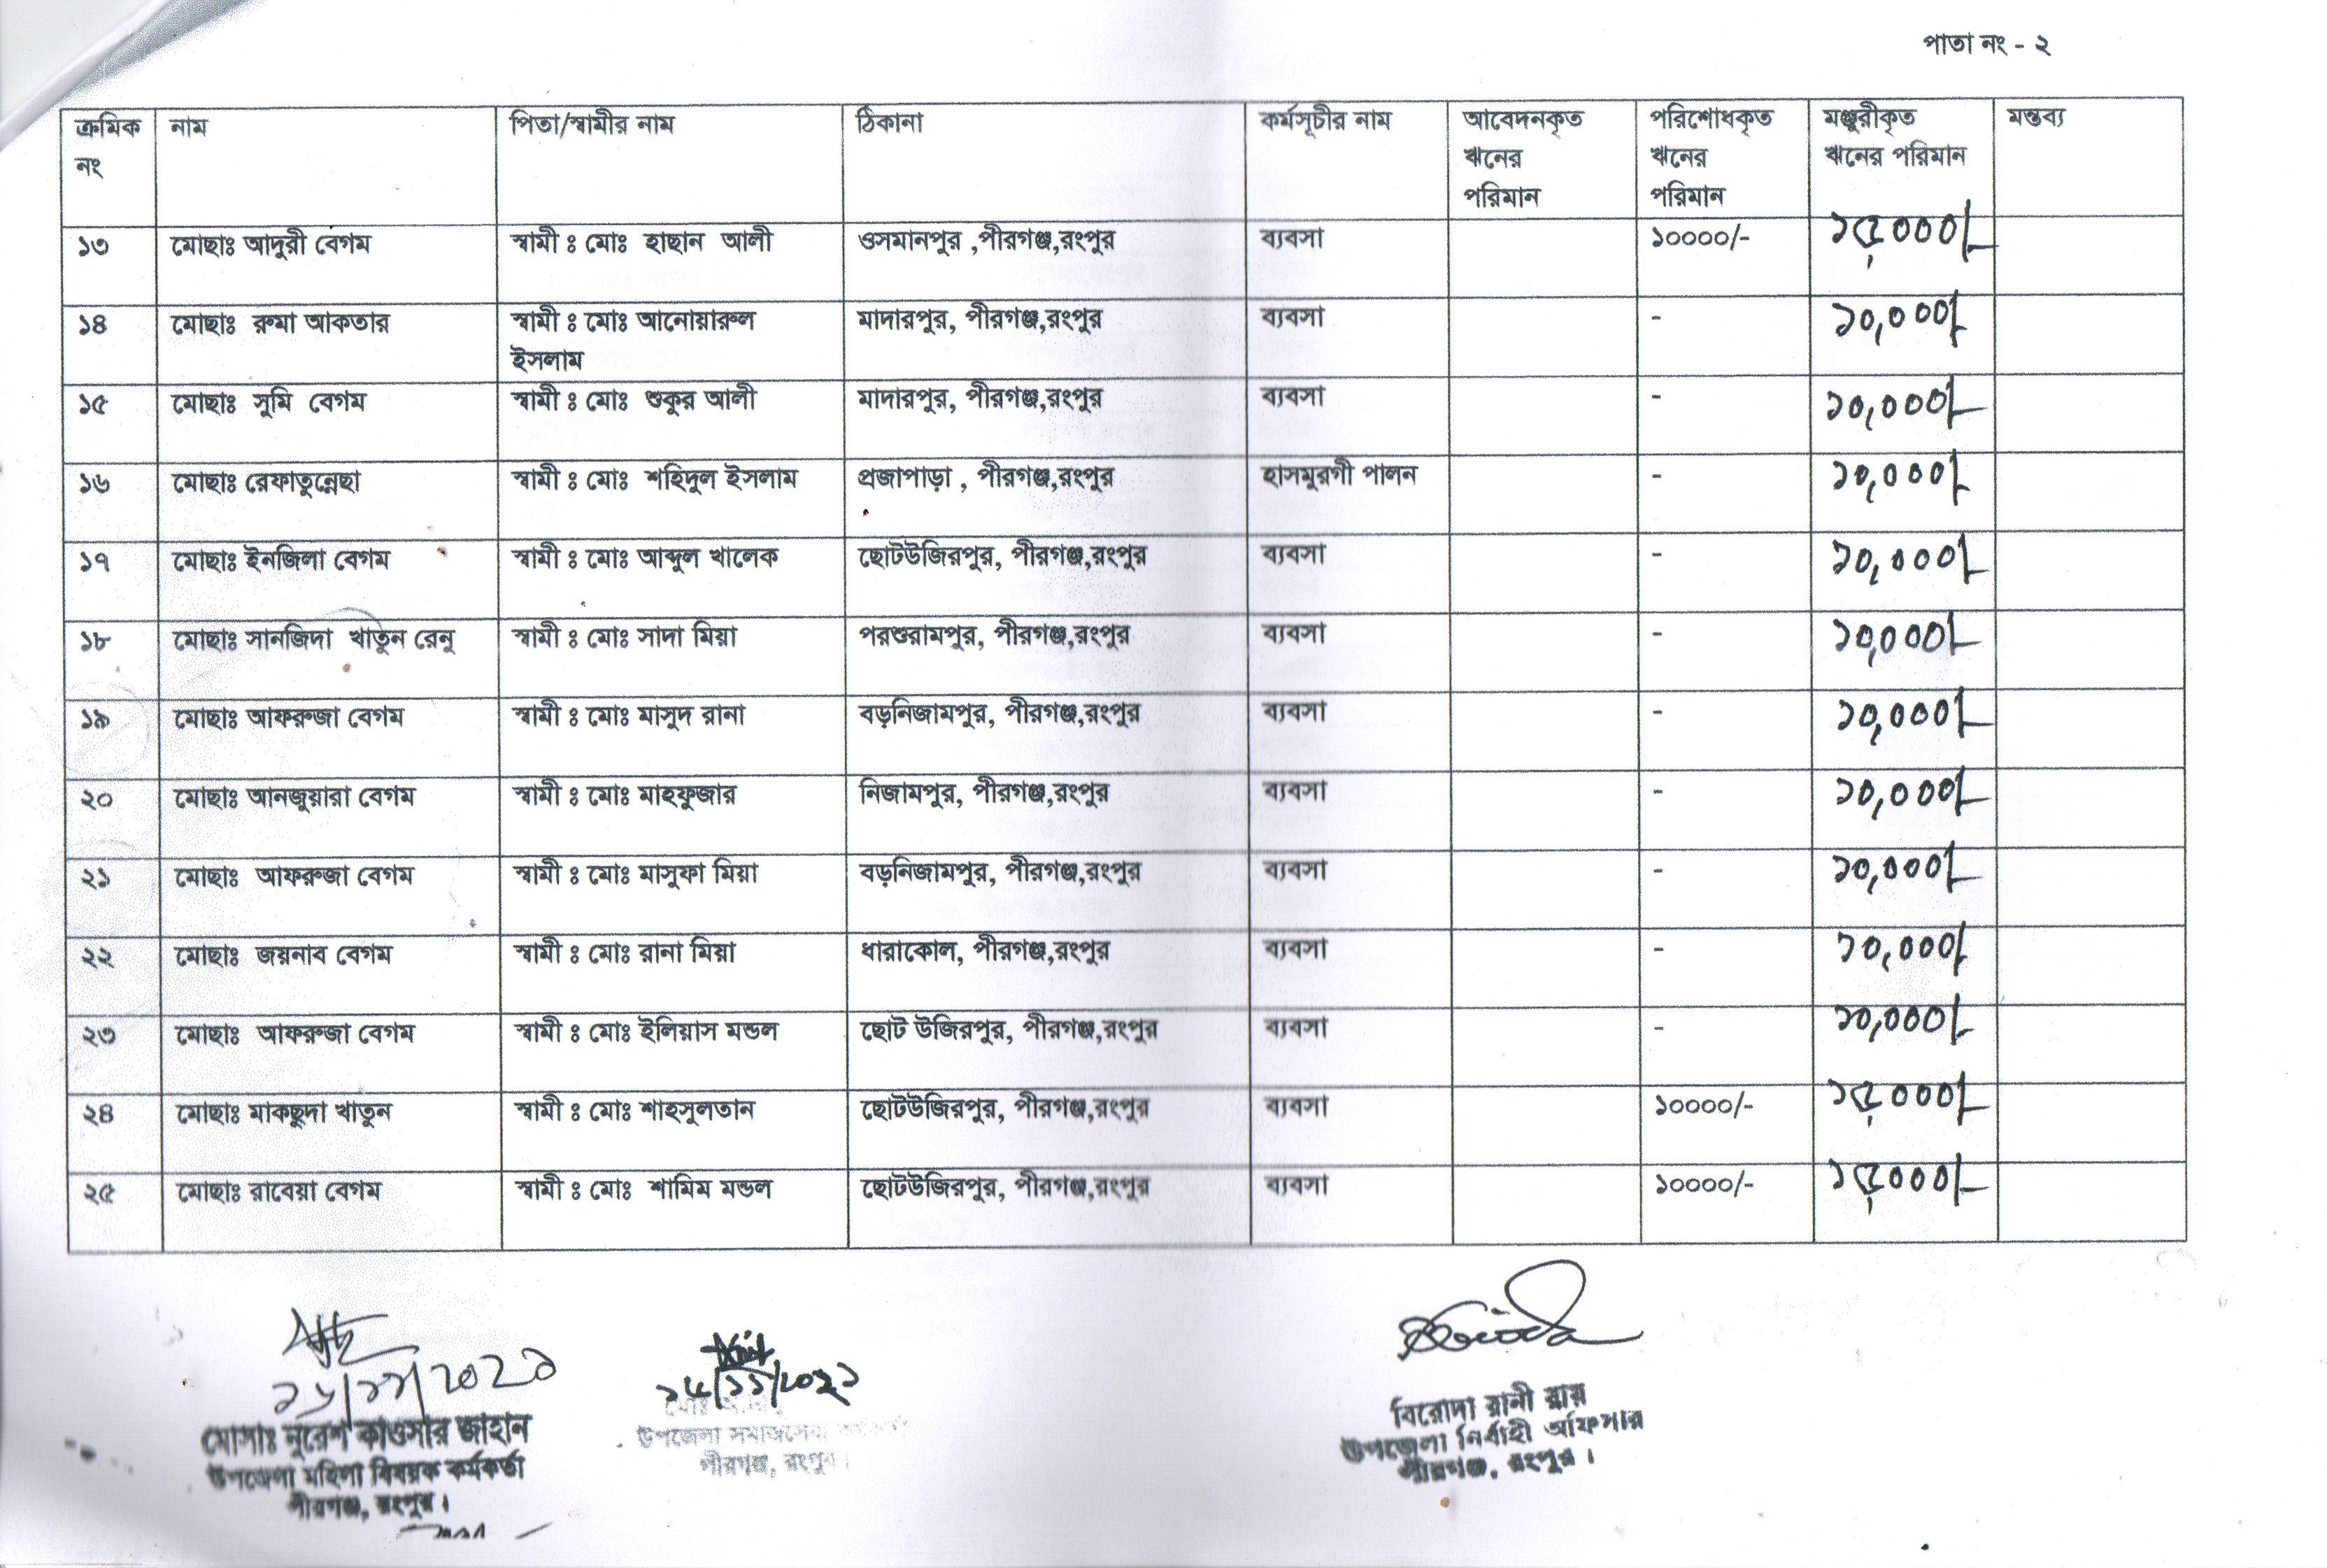 পাতা নং - ২
ক্রমিক নং | নাম | পিতা/স্বামীর নাম | ঠিকানা | কর্মসূচীর নাম | আবেদনকৃত ঋনের পরিমান | পরিশোধকৃত ঋনের পরিমান | মঞ্জুরীকৃত ঋনের পরিমান | মন্তব্য
১৩ মোছাঃ আদুরী বেগম স্বামী ঃ মোঃ হাছান আলী ওসমানপুর ,পীরগঞ্জ,রংপুর ব্যবসা ১০০০০/- ১৫,০০০/-
১৪ মোছাঃ রুমা আকতার স্বামী ঃ মোঃ আনোয়ারুল ইসলাম মাদারপুর, পীরগঞ্জ,রংপুর ব্যবসা - ১০,০০০/-
১৫ মোছাঃ সুমি বেগম স্বামী ঃ মোঃ শুকুর আলী মাদারপুর, পীরগঞ্জ,রংপুর ব্যবসা - ১০,০০০/-
১৬ মোছাঃ রেফাতুন্নেছা স্বামী ঃ মোঃ শহিদুল ইসলাম প্রজাপাড়া , পীরগঞ্জ,রংপুর হাসমুরগী পালন - ১০,০০০/-
১৭ মোছাঃ ইনজিলা বেগম স্বামী ঃ মোঃ আব্দুল খালেক ছোটউজিরপুর, পীরগঞ্জ,রংপুর ব্যবসা - ১০,০০০/-
১৮ মোছাঃ সানজিদা খাতুন রেনু স্বামী ঃ মোঃ সাদা মিয়া পরশুরামপুর, পীরগঞ্জ,রংপুর ব্যবসা - ১০,০০০/-
১৯ মোছাঃ আফরুজা বেগম স্বামী ঃ মোঃ মাসুদ রানা বড়নিজামপুর, পীরগঞ্জ,রংপুর ব্যবসা - ১০,০০০/-
২০ মোছাঃ আনজুয়ারা বেগম স্বামী ঃ মোঃ মাহফুজার নিজামপুর, পীরগঞ্জ,রংপুর ব্যবসা - ১০,০০০/-
২১ মোছাঃ আফরুজা বেগম স্বামী ঃ মোঃ মাসুফা মিয়া বড়নিজামপুর, পীরগঞ্জ,রংপুর ব্যবসা - ১০,০০০/-
২২ মোছাঃ জয়নাব বেগম স্বামী ঃ মোঃ রানা মিয়া ধারাকোল, পীরগঞ্জ,রংপুর ব্যবসা - ১০,০০০/-
২৩ মোছাঃ আফরুজা বেগম স্বামী ঃ মোঃ ইলিয়াস মন্ডল ছোট উজিরপুর, পীরগঞ্জ,রংপুর ব্যবসা - ১০,০০০/-
২৪ মোছাঃ মাকছুদা খাতুন স্বামী ঃ মোঃ শাহসুলতান ছোটউজিরপুর, পীরগঞ্জ,রংপুর ব্যবসা ১০০০০/- ১৫,০০০/-
২৫ মোছাঃ রাবেয়া বেগম স্বামী ঃ মোঃ শামিম মন্ডল ছোটউজিরপুর, পীরগঞ্জ,রংপুর ব্যবসা ১০০০০/- ১৫,০০০/-
১৬/১১/২০২১
মোসাঃ নুরেশ কাওসার জাহান
উপজেলা মহিলা বিষয়ক কর্মকর্তা
পীরগঞ্জ, রংপুর।
১৬/১১/২০২১
উপজেলা সমাজসেবা কর্মকর্তা
পীরগঞ্জ, রংপুর।
বিরোদা রানী রায়
উপজেলা নির্বাহী অফিসার
পীরগঞ্জ, রংপুর।